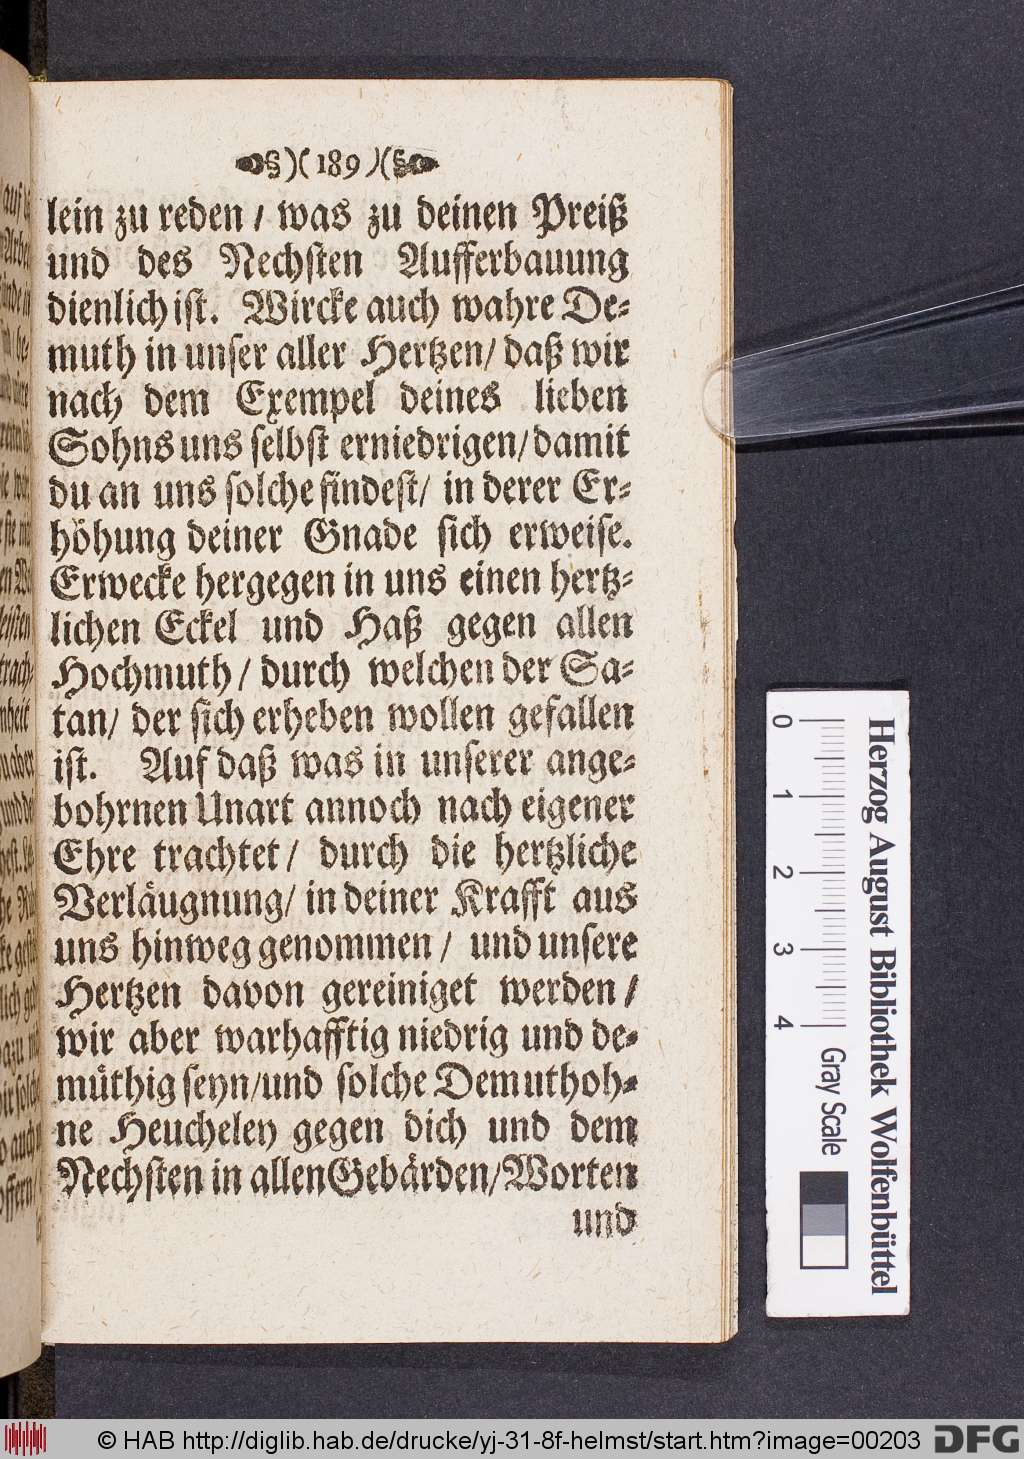 )( 189 )(
lein zu reden / was zu deinen Preiß
und des Nechsten Aufferbauung
dienlich ist. Wircke auch wahre De-
muth in unser aller Hertzen/ daß wir
nach dem Exempel deines lieben
Sohns uns selbst erniedrigen/ damit
du an uns solche findest/ in derer Er-
höhung deiner Gnade sich erweise.
Erwecke hergegen in uns einen hertz-
lichen Eckel und Haß gegen allen
Hochmuth / durch welchen der Sa-
tan/ der sich erheben wollen gefallen
ist. Auf daß was in unserer ange-
bohrnen Unart annoch nach eigener
Ehre trachtet / durch die hertzliche
Verläugnung/ in deiner Krafft aus
uns hinweg genommen / und unsere
Hertzen davon gereiniget werden /
wir aber warhafftig niedrig und de-
müthig seyn/und solche Demuth oh-
ne Heucheley gegen dich und dem
Nechsten in allen Gebärden/ Worten
und
Herzog August Bibliothek Wolfenbüttel
0 1 2 3 4 Gray Scale
© HAB http://diglib.hab.de/drucke/yj-31-8f-helmst/start.htm?image=00203
DFG